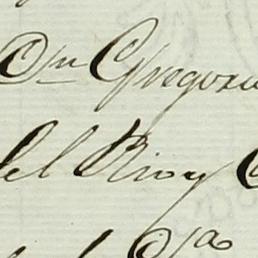 Dn Gregorio
del Rio y